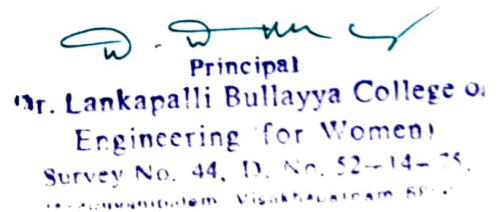 Principal
Dr. Lankapalli Bullayya College o
Engineering (for Women)
Survey No. 44, D. No. 52-14-75,
Visakhapatnam